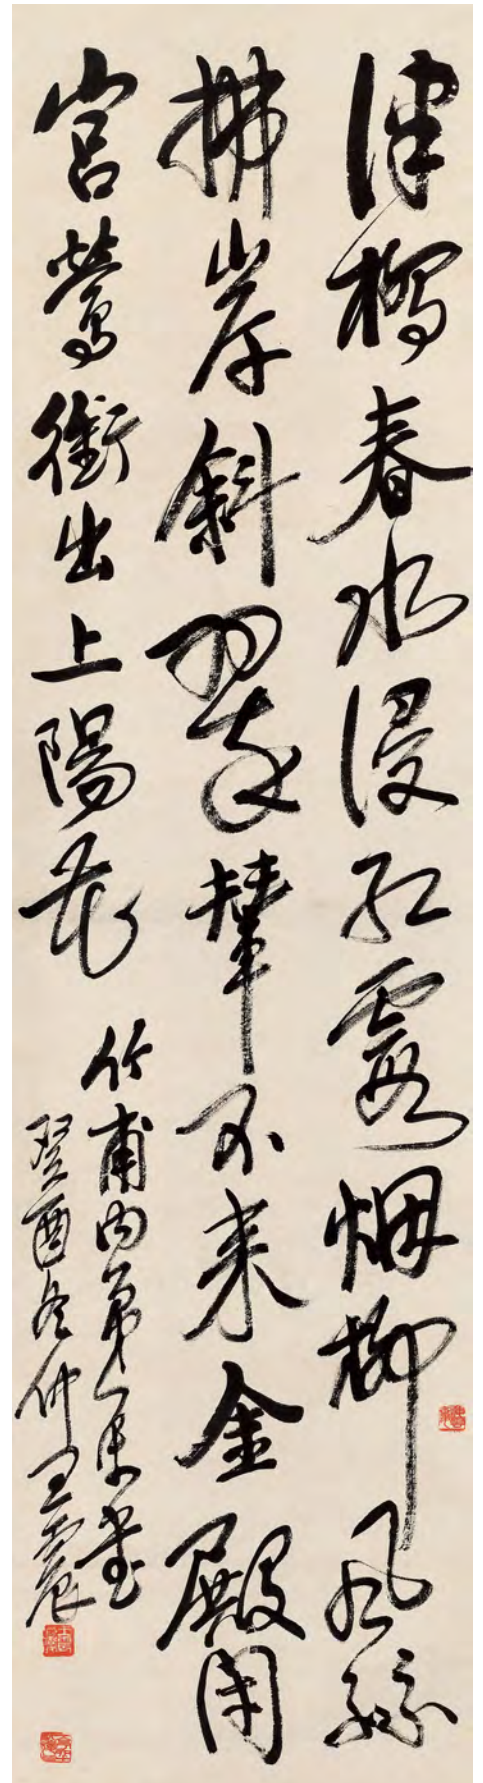 津橋春水浸紅霞烟柳風絲
拂岸斜翠輦不來金殿閉
宮鶯銜出上陽花
竹甫内弟書
癸酉冬仲王震